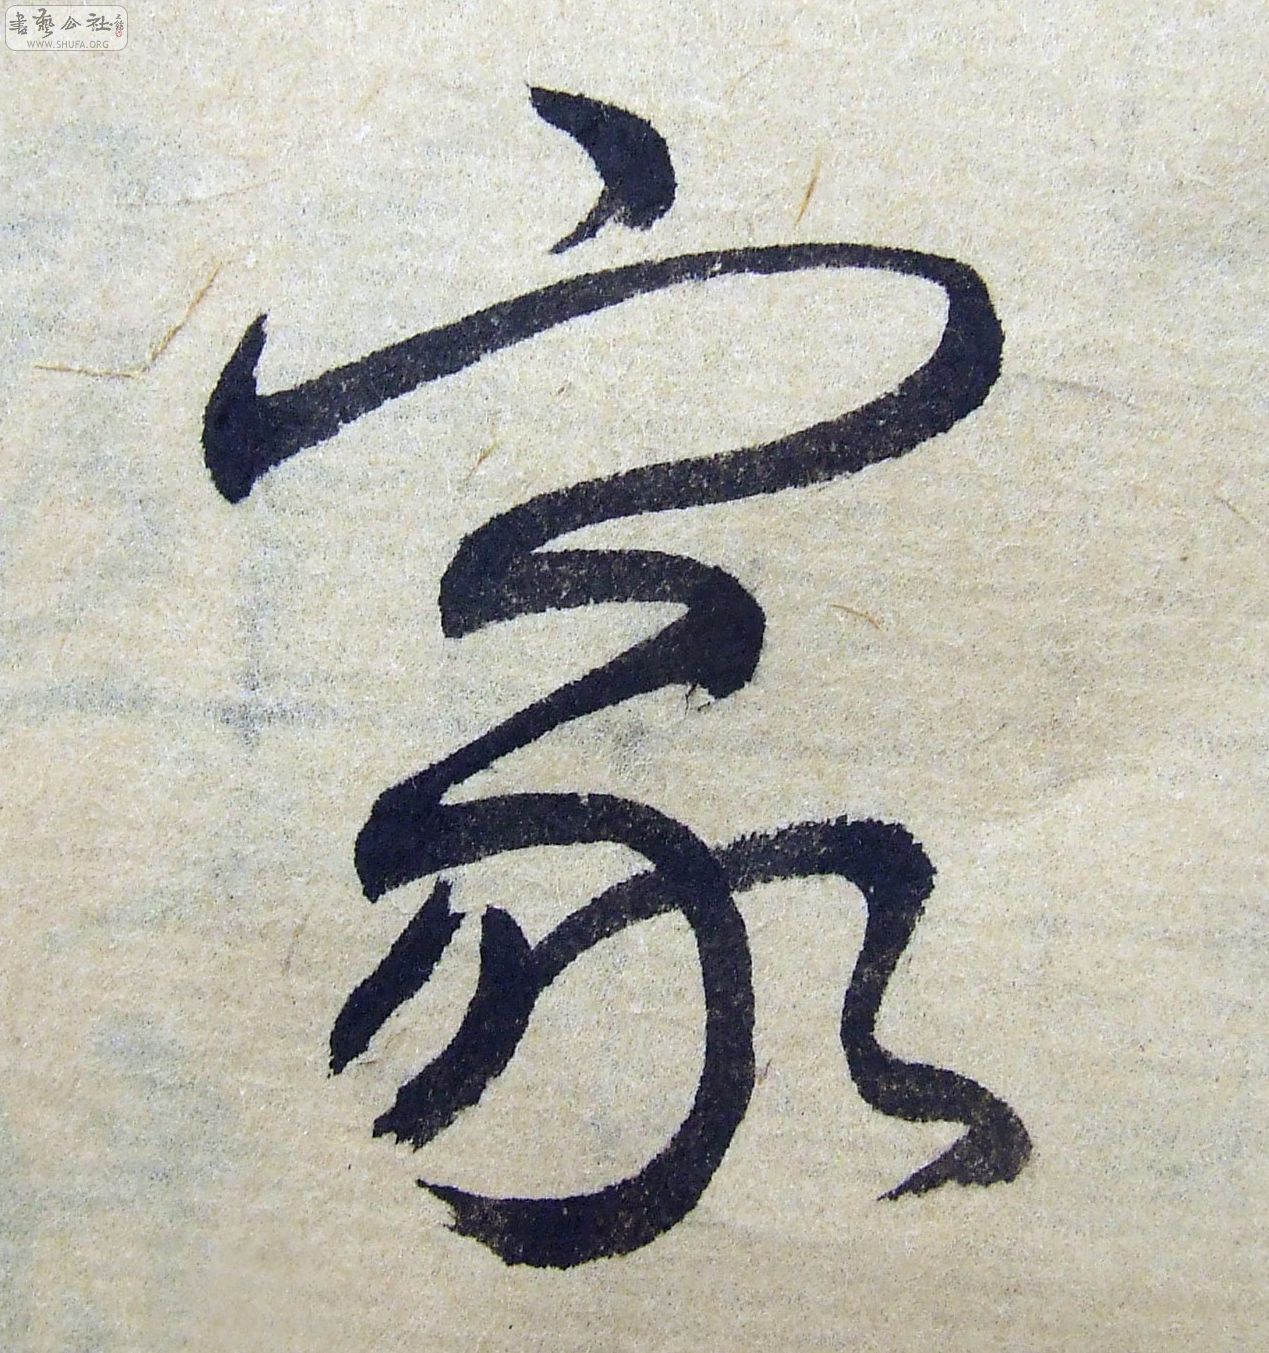 書藝公社
WWW.SHUFA.ORG
家